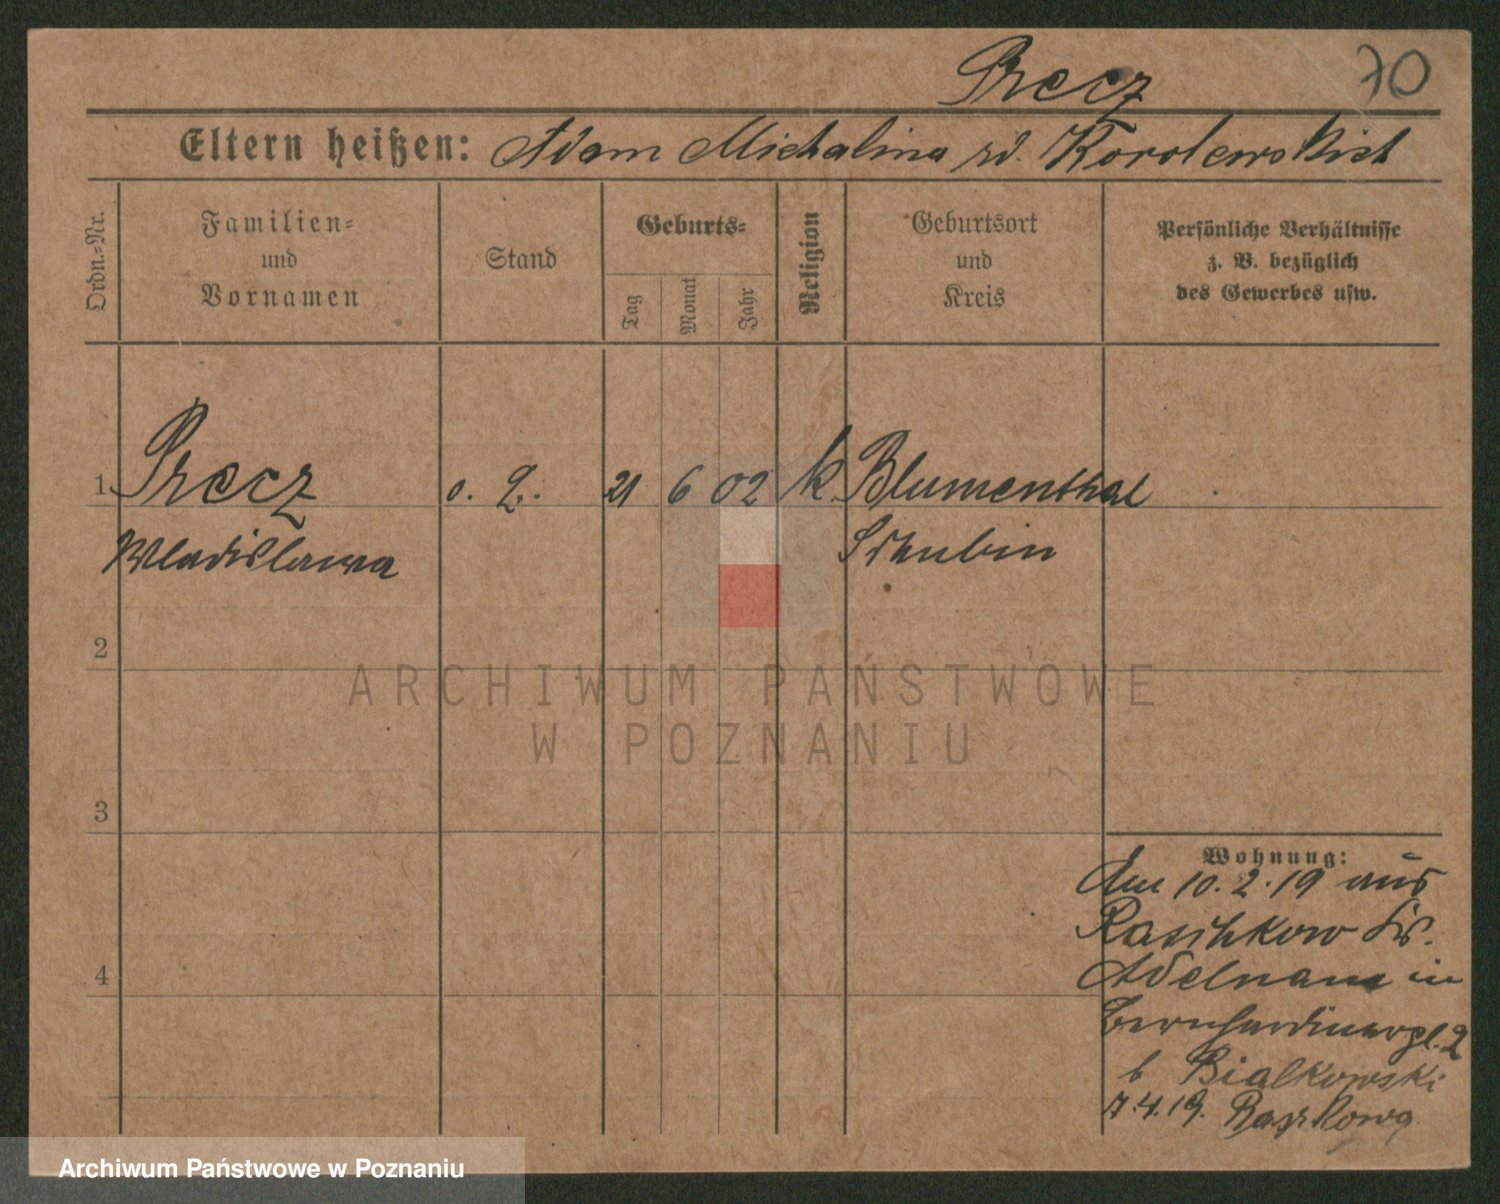 Precz 70
Eltern heißen: Adam Michalina
Ordn.-Nr.
Familien-
und
Vornamen
Stand
Geburts-
Tag
Monat
Jahr
Religion
Geburtsort
und
Kreis
Persönliche Verhältnisse
z. B. bezüglich
des Gewerbes usw.
1 Precz 21 6 02 k. Blumenthal
Wladislawa Schubin
2
ARCHIWUM PAŃSTWOWE
W POZNANIU
3
Wohnung:
Am 10.2.19 aus
Raschkow Kr.
Adelnau in
4
Bernhardinerpl. 2
b Bialkowski
7.4.19. Raszkowa
Archiwum Państwowe w Poznaniu